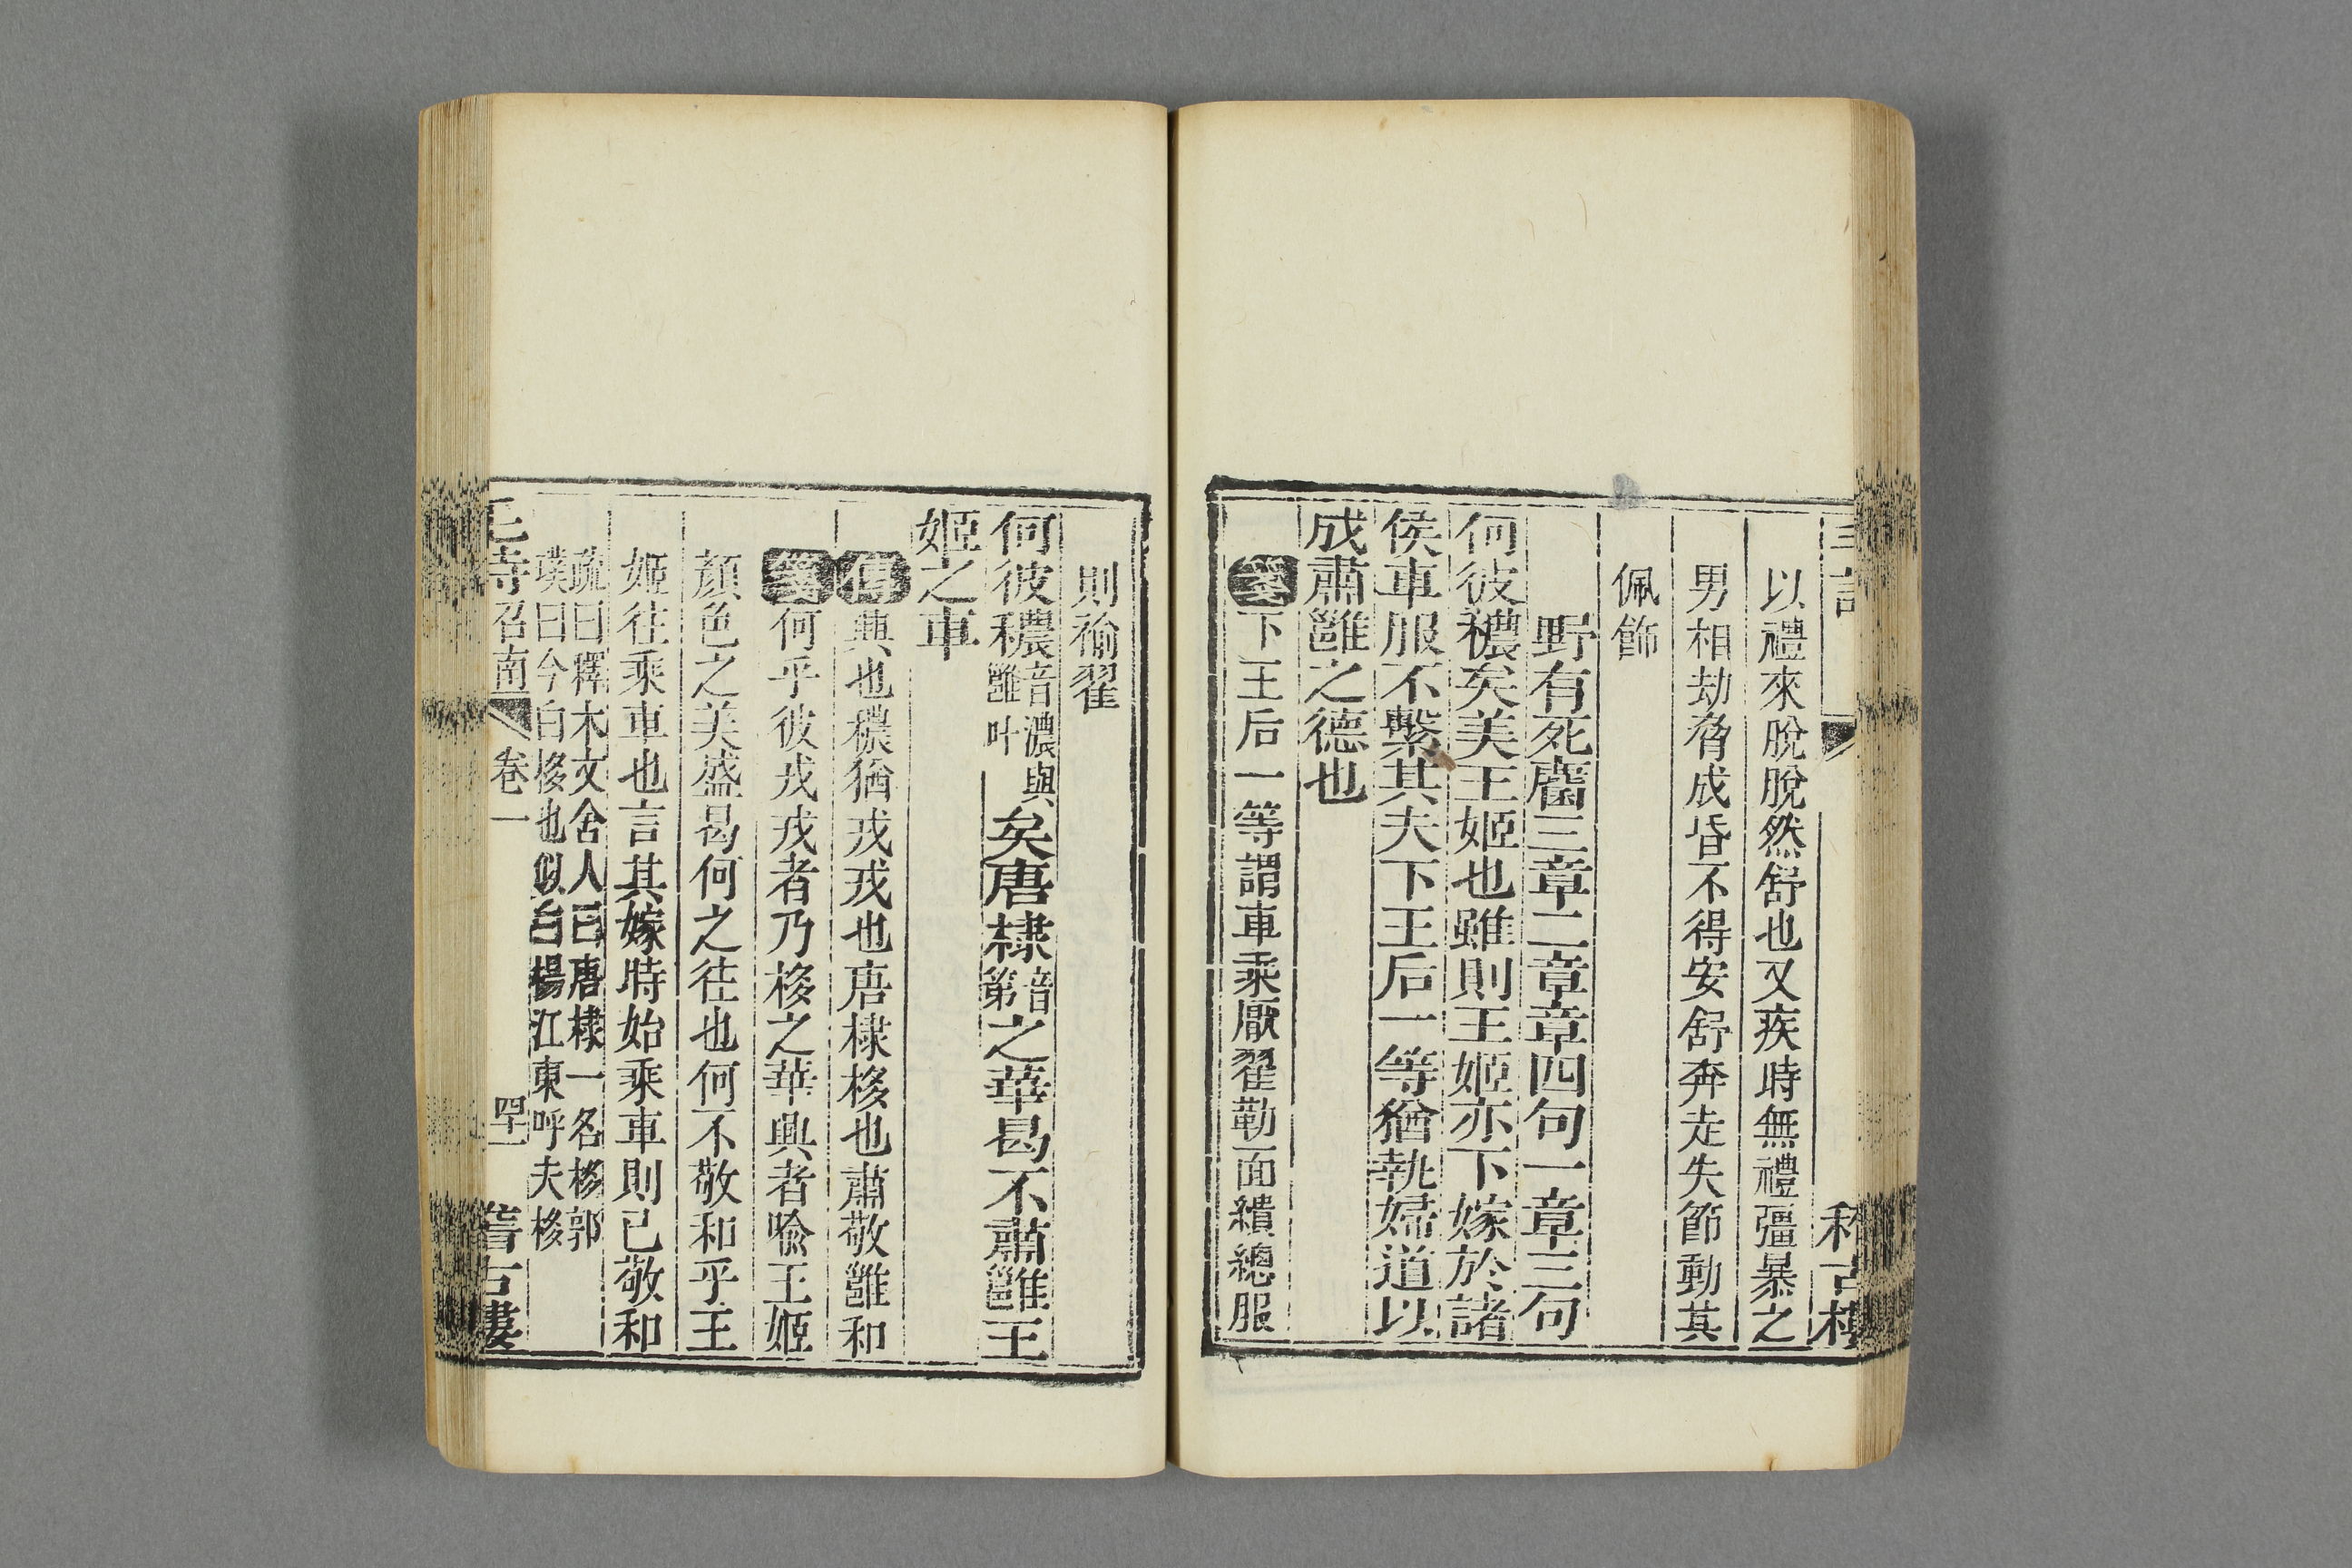 以禮來脫脫然舒也又疾時無禮彊暴之
男相劫脅成昏不得安舒奔走失節動其
佩飾
野有死麕三章二章章四句一章三句
何彼穠矣美王姬也雖則王姬亦下嫁於諸
侯車服不繫其夫下王后一等猶執婦道以
成肅雝之德也
箋下王后一等謂車乘厭翟勒面繢總服
則褕翟
何彼穠音濃與雝叶矣唐棣音第之華曷不肅雝王
姬之車
傳興也穠猶戎戎也唐棣栘也肅敬雝和
箋何乎彼戎戎者乃栘之華興者喩王姬
顏色之美盛曷何之往也何不敬和乎王
姬往乘車也言其嫁時始乘車則已敬和
疏曰釋木文舍人曰唐棣一名栘郭
璞曰今白栘也似白楊江東呼夫栘
召南 卷一 四十一